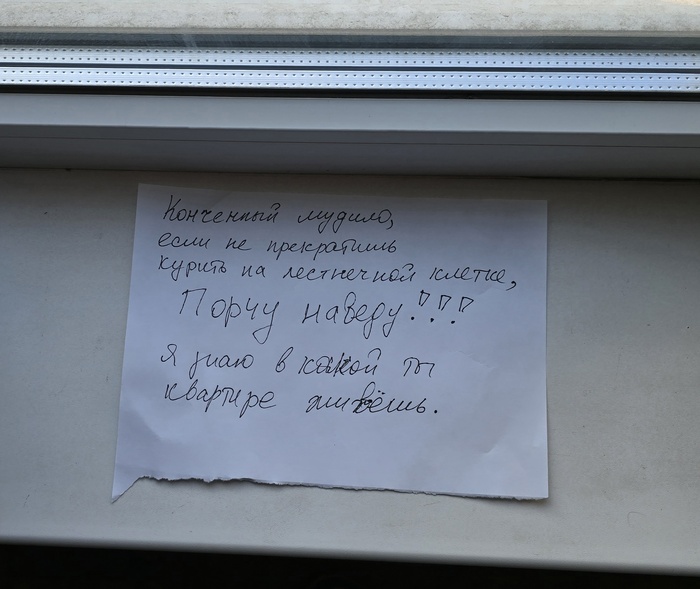 Конченный мудило,
если не прекратишь
курить на лестнечной клетке,
Порчу наведу!!!
я знаю в какой ты
квартире живёшь.